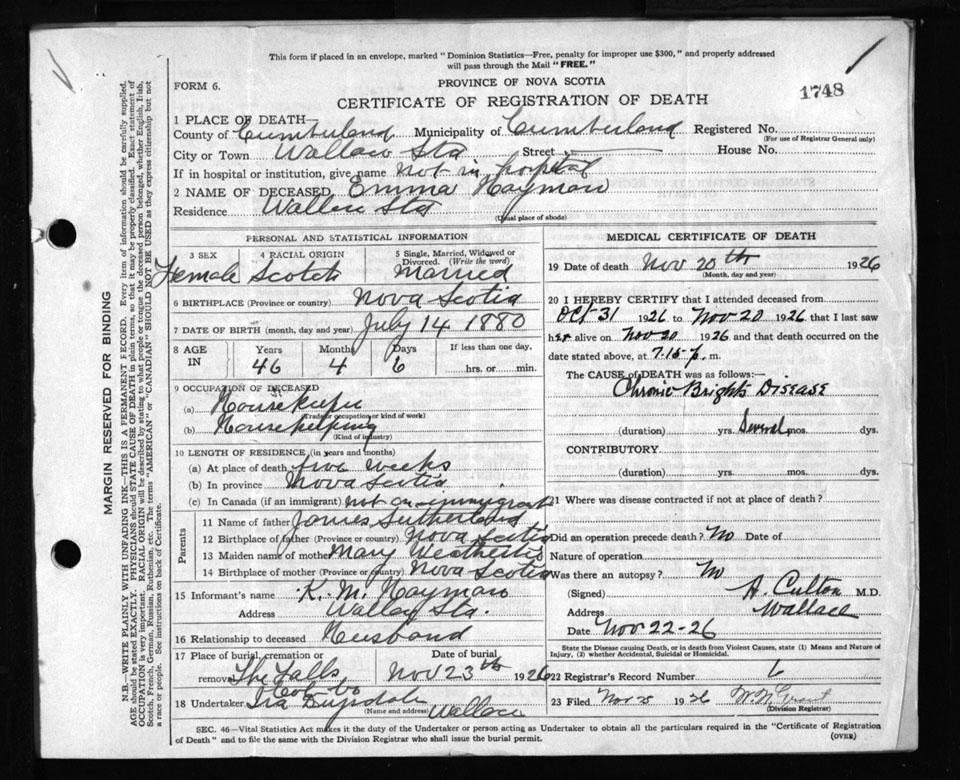 This form if placed in an envelope, marked "Dominion Statistics—Free, penalty for improper use $300," and properly addressed
will pass through the Mail "FREE."
FORM 6.
PROVINCE OF NOVA SCOTIA
CERTIFICATE OF REGISTRATION OF DEATH
1748
1 PLACE OF DEATH—
County of Cumberland Municipality of Cumberland Registered No.
(For use of Registrar General only)
City or Town Wallace Sta Street House No.
If in hospital or institution, give name not in hospital
2 NAME OF DECEASED Emma Hayman
Residence Wallace Sta
(Usual place of abode)
PERSONAL AND STATISTICAL INFORMATION
3 SEX 4 RACIAL ORIGIN 5 Single, Married, Widowed or Divorced. (Write the word)
Female Scotch Married
6 BIRTHPLACE (Province or country) Nova Scotia
7 DATE OF BIRTH (month, day and year) July 14 1880
8 AGE IN Years Months Days If less than one day,
46 4 6 hrs. or min.
9 OCCUPATION OF DECEASED
(a) Housekeeper
(Trade occupation or kind of work)
(b) Housekeeping
(Kind of industry)
10 LENGTH OF RESIDENCE (in years and months)
(a) At place of death five weeks
(b) In province Nova Scotia
(c) In Canada (if an immigrant) not an immigrant
Parents
11 Name of father James Sutherland
12 Birthplace of father (Province or country) Nova Scotia
13 Maiden name of mother Mary
14 Birthplace of mother (Province or country) Nova Scotia
15 Informant's name K. M. Hayman
Address Wallace Sta.
16 Relationship to deceased Husband
17 Place of burial, cremation or removal Date of burial
The Falls Nov 23th 1926
18 Undertaker Ira Wallace
(Name and address)
MEDICAL CERTIFICATE OF DEATH
19 Date of death Nov 20th 1926
(Month, day and year)
20 I HEREBY CERTIFY that I attended deceased from
Oct 31 1926 to Nov 20 1926 that I last saw
her alive on Nov 20 1926 and that death occurred on the
date stated above, at 7.15 p. m.
The CAUSE of DEATH was as follows:—
Chronic Brights Disease
(duration) yrs. Several mos. dys.
CONTRIBUTORY
(duration) yrs. mos. dys.
21 Where was disease contracted if not at place of death?
Did an operation precede death? No Date of
Nature of operation
Was there an autopsy? No
(Signed) M.D.
Address Wallace
Date Nov 22-26
State the Disease causing Death, or in death from Violent Causes, state (1) Means and Nature of Injury, (2) whether Accidental, Suicidal or Homicidal.
22 Registrar's Record Number
23 Filed Nov 25 1926 Grant
(Division Registrar)
SEC. 46—Vital Statistics Act makes it the duty of the Undertaker or person acting as Undertaker to obtain all the particulars required in the "Certificate of Registration
of Death" and to file the same with the Division Registrar who shall issue the burial permit.
(OVER)
MARGIN RESERVED FOR BINDING
N.B.—WRITE PLAINLY WITH UNFADING INK—THIS IS A PERMANENT RECORD. Every item of information should be carefully supplied.
AGE should be stated EXACTLY. PHYSICIANS should STATE CAUSE OF DEATH in plain terms, so that it may be properly classified. Exact statement of
OCCUPATION is very important. RACIAL ORIGIN will be described by stating to what people or tongue the deceased person belonged, whether English, Irish,
Scotch, French, German, Russian, Ruthenian, etc. The terms "AMERICAN" or "CANADIAN" SHOULD NOT BE USED as they express citizenship but not
a race or people. See instructions on back of Certificate.